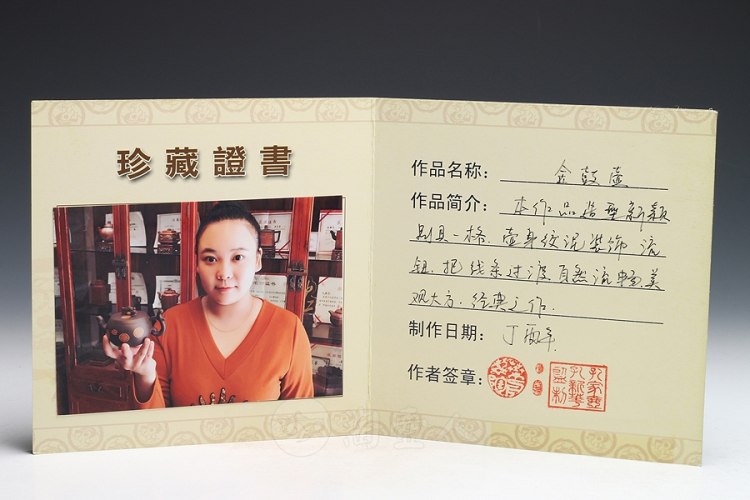 珍藏證書
作品名称：金鼓壶
作品简介：本作品造型新颖
别具一格，壶身绞泥装饰 流
钮、把线条过渡自然流畅美
观大方，经典之作。
制作日期：丁酉年
作者签章：